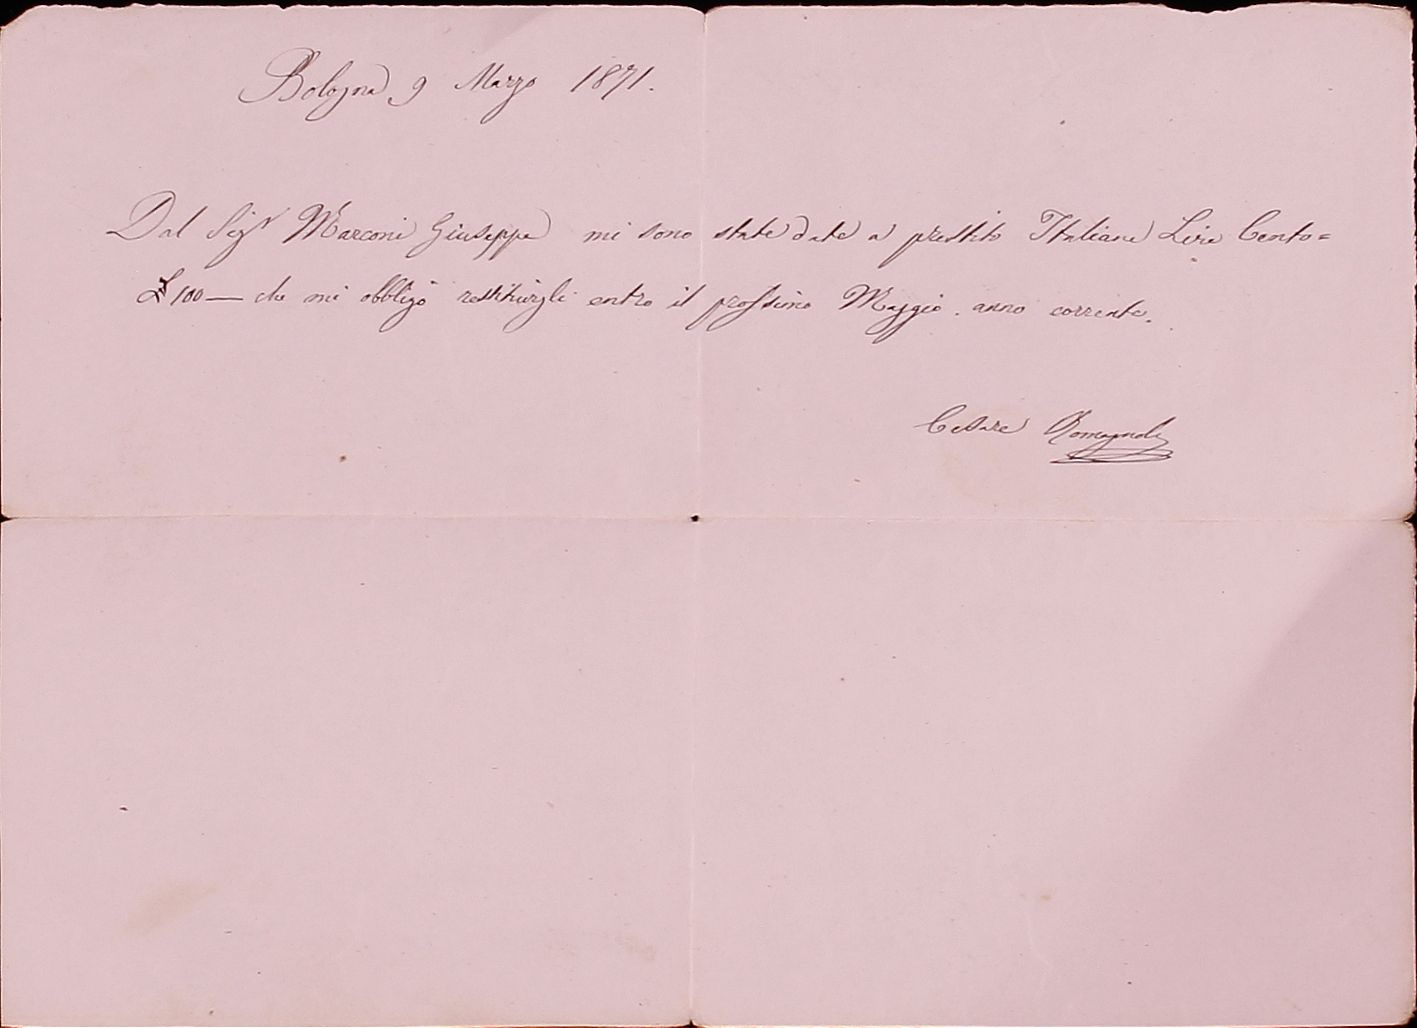 Bologna 9 Marzo 1871.
Dal Sigr Marconi Giuseppe mi sono state date a prestito Italiane Lire Cento=
£ 100— che mi obbligo restituirgli entro il prossimo Maggio. anno corrente.
Cesare Romagnoli